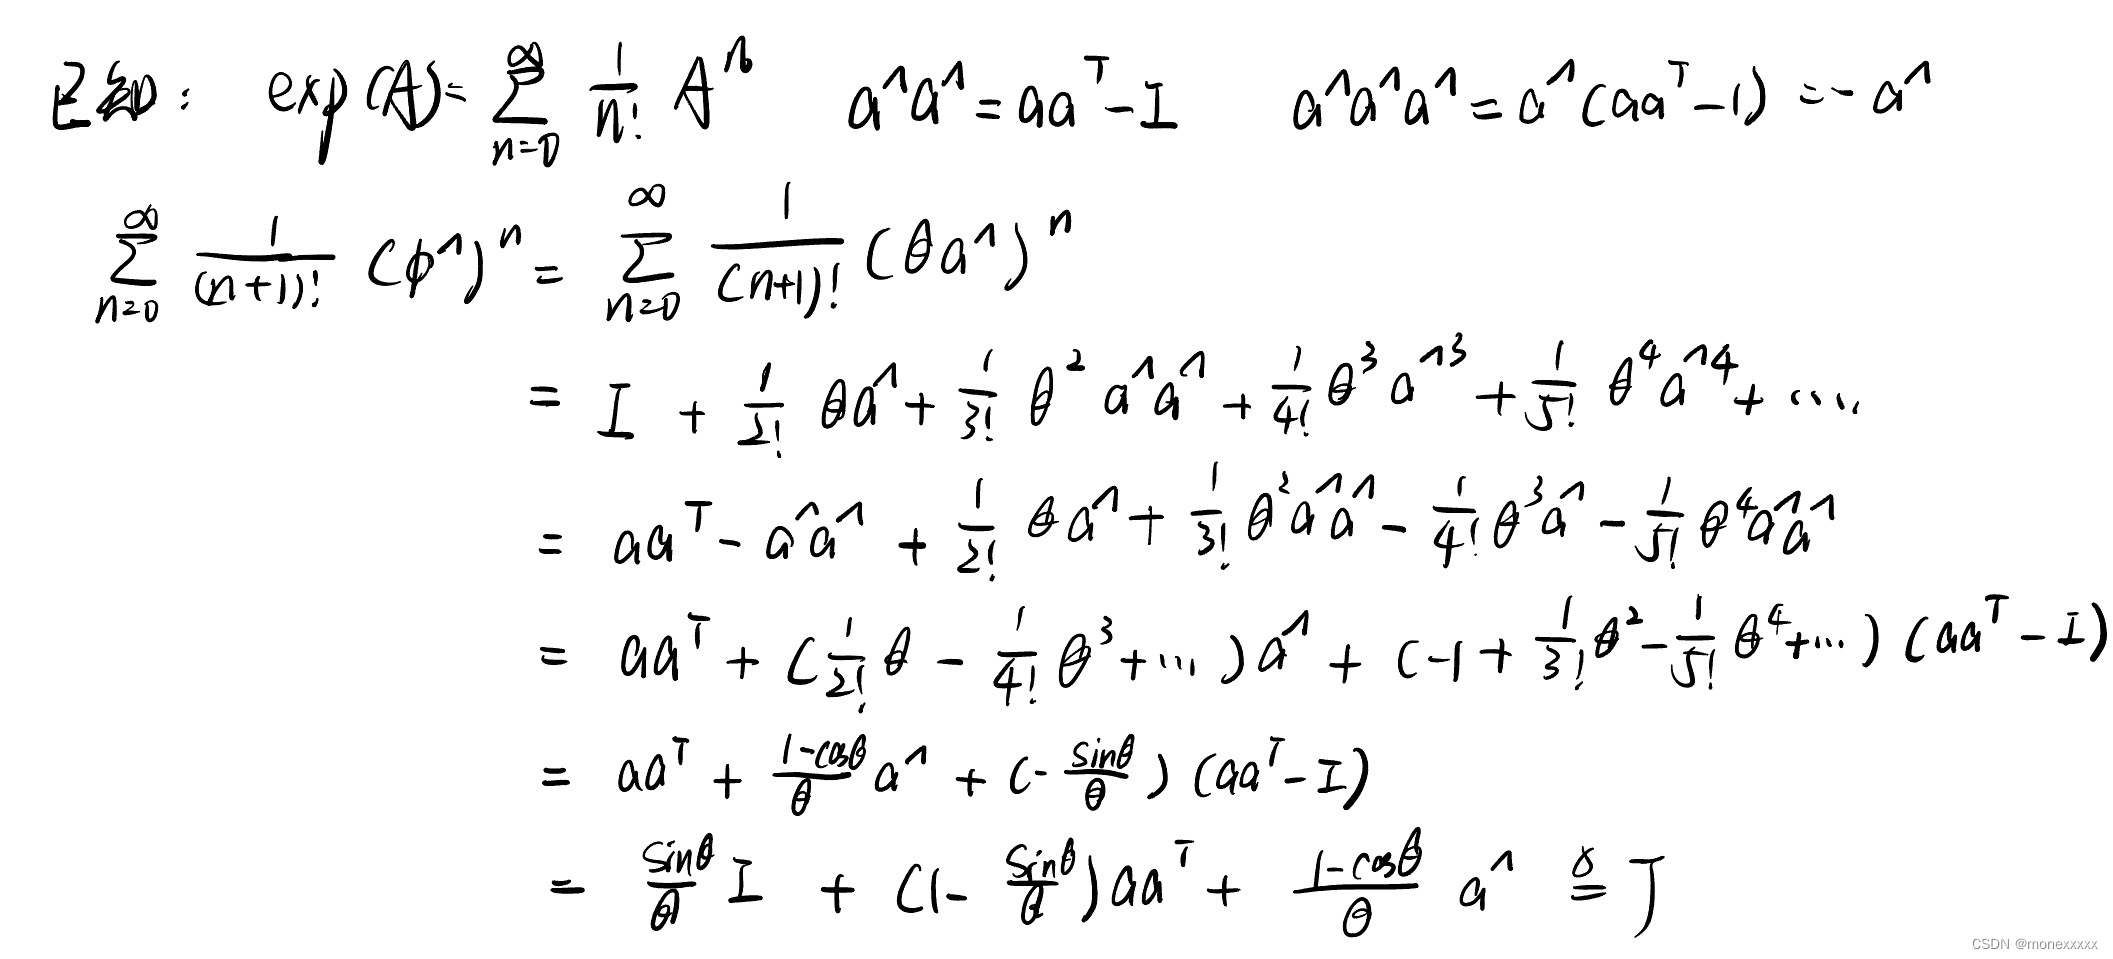 已知: exp(A)= ∑_{n=0}^{∞} 1/n! A^n   a^∧a^∧ = aa^T - I   a^∧a^∧a^∧ = a^∧(aa^T - 1) = - a^∧
∑_{n=0}^{∞} 1/(n+1)! (ϕ^∧)^n = ∑_{n=0}^{∞} 1/(n+1)! (θa^∧)^n
= I + 1/2! θa^∧ + 1/3! θ^2 a^∧a^∧ + 1/4! θ^3 a^∧3 + 1/5! θ^4 a^∧4 + ....
= aa^T - a^∧a^∧ + 1/2! θa^∧ + 1/3! θ^2 a^∧a^∧ - 1/4! θ^3 a^∧ - 1/5! θ^4 a^∧a^∧
= aa^T + (1/2! θ - 1/4! θ^3 + ...) a^∧ + (-1 + 1/3! θ^2 - 1/5! θ^4 + ...) (aa^T - I)
= aa^T + (1-cosθ)/θ a^∧ + (- sinθ/θ) (aa^T - I)
= sinθ/θ I + (1 - sinθ/θ) aa^T + (1-cosθ)/θ a^∧ ≜ J
CSDN @monexxxxx